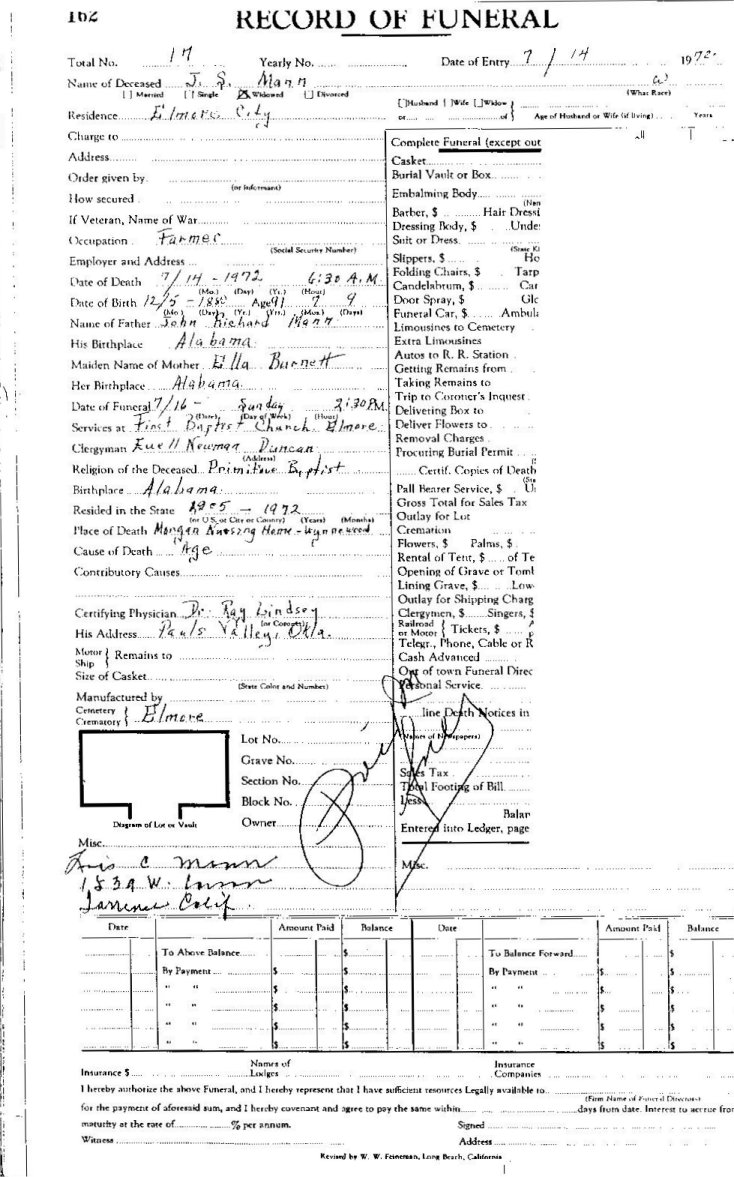 162 RECORD OF FUNERAL
Total No. 17 Yearly No. Date of Entry 7/14 1972
Name of Deceased J. S. Mann W
[ ] Married [ ] Single [X] Widowed [ ] Divorced (What Race)
[ ]Husband [ ]Wife [ ]Widow
Residence Elmore City or of Age of Husband or Wife (if living) Years
Charge to
Complete Funeral (except out
Address
Casket
Order given by
Burial Vault or Box
(or Informant)
How secured
Embalming Body
If Veteran, Name of War
Barber, $ Hair Dressi
Dressing Body, $ Unde
Occupation Farmer
Suit or Dress
(Social Security Number)
Employer and Address
Slippers, $ Ho
Date of Death 7/14 - 1972 6:30 A.M.
Folding Chairs, $ Tarp
(Mo.) (Day) (Yr.) (Hour)
Candelabrum, $ Car
Date of Birth 12/5 - 1880 Age 91 7 9
Door Spray, $ Glo
(Mo.) (Day) (Yr.) (Yrs.) (Mos.) (Days)
Funeral Car, $ Ambula
Name of Father John Richard Mann
Limousines to Cemetery
His Birthplace Alabama
Extra Limousines
Autos to R. R. Station
Maiden Name of Mother Ella Burnett
Getting Remains from
Her Birthplace Alabama
Taking Remains to
Trip to Coroner's Inquest
Date of Funeral 7/16 - Sunday 2:30 PM
Delivering Box to
(Date) (Day of Week) (Hour)
Services at First Baptist Church Elmore
Deliver Flowers to
Removal Charges
Clergyman Euell Newman Duncan
Procuring Burial Permit
(Address)
Religion of the Deceased Primitive Baptist
Certif. Copies of Death
Birthplace Alabama
Pall Bearer Service, $
Resided in the State 1905 - 1972
Gross Total for Sales Tax
(or U.S. or City or County) (Years) (Months)
Outlay for Lot
Place of Death Morgan Nursing Home - Wynnewood
Cremation
Flowers, $ Palms, $
Cause of Death Age
Rental of Tent, $ of Te
Contributory Causes
Opening of Grave or Tomb
Lining Grave, $ Low
Outlay for Shipping Charg
Certifying Physician Dr. Ray Lindsey
Clergymen, $ Singers, $
(or Coroner)
His Address Pauls Valley, Okla.
Railroad or Motor Tickers, $
Telegr., Phone, Cable or R
Motor Ship Remains to
Cash Advanced
Size of Casket
Out of town Funeral Direc
(State Color and Number)
Personal Service
Manufactured by
Cemetery Crematory Elmore
line Death Notices in
Lot No.
(Names of Newspapers)
Grave No.
Section No.
Sales Tax
Total Footing of Bill
Block No.
Less
Balan
Diagram of Lot or Vault Owner
Entered into Ledger, page
Misc.
C Mann
Misc.
1839 W.
Calif.
Date Amount Paid Balance Date Amount Paid Balance
To Above Balance $ To Balance Forward $
By Payment $ $ By Payment $ $
" " $ $ " " $ $
" " $ $ " " $ $
" " $ $ " " $ $
" " $ $ " " $ $
Insurance $ Names of Lodges Insurance Companies
I hereby authorize the above Funeral, and I hereby represent that I have sufficient resources Legally available to
(Firm Name of Funeral Directors)
for the payment of aforesaid sum, and I hereby covenant and agree to pay the same within days from date. Interest to accrue from
maturity at the rate of % per annum. Signed
Witness Address
Revised by W. W. Feineman, Long Beach, California